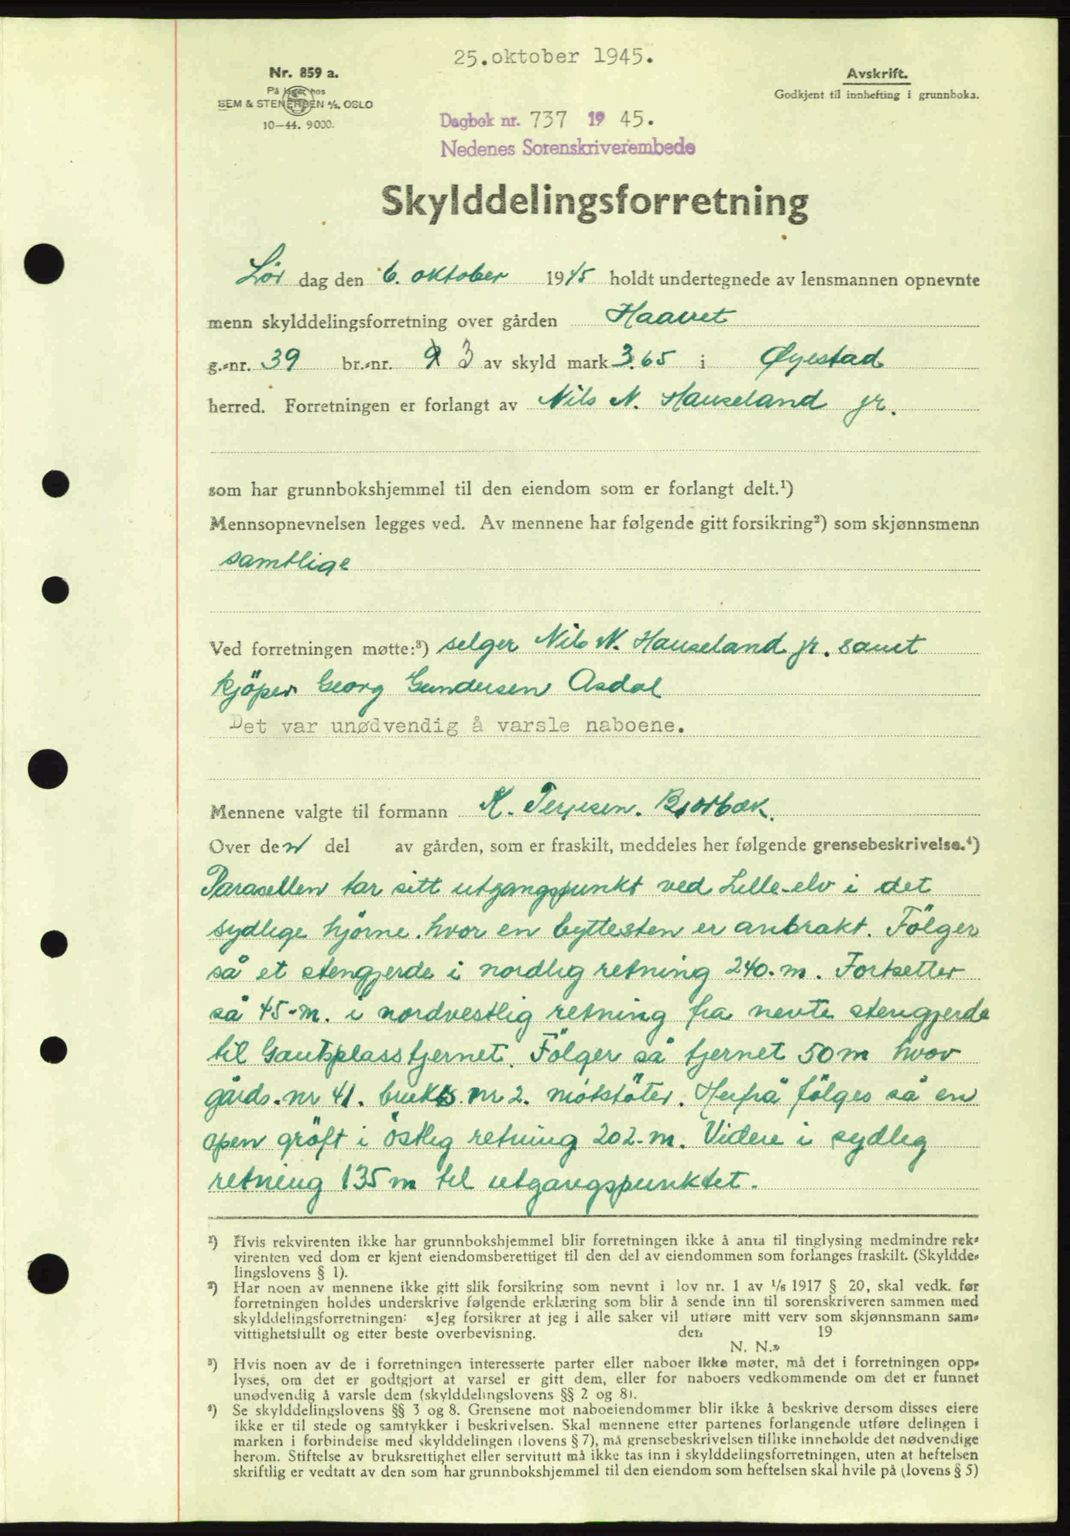 25.oktober 1945.
Nr. 859 a.
På lager hos
SEM & STENERSEN A/S. OSLO
10-44. 9000.
Avskrift.
Godkjent til innhefting i grunnboka.
Dagbok nr. 737 1945.
Nedenes Sorenskriverembede
Skylddelingsforretning
Lör dag den 6. oktober 1945 holdt undertegnede av lensmannen opnevnte
menn skylddelingsforretning over gården Haavet
g.-nr. 39 br.-nr. 3 av skyld mark 3.65 i Øyestad
herred. Forretningen er forlangt av Nils N. Hauseland jr.
som har grunnbokshjemmel til den eiendom som er forlangt delt.¹)
Mennsopnevnelsen legges ved. Av mennene har følgende gitt forsikring²) som skjønnsmenn
samtlige
Ved forretningen møtte:³) selger Nils N. Hauseland jr. samt
kjöper Georg Gundersen Asdal
Det var unødvendig å varsle naboene.
Mennene valgte til formann K. Terjesen. Bjorbæk.
Over den del av gården, som er fraskilt, meddeles her følgende grensebeskrivelse.⁴)
Parasellen tar sitt utgangspunkt ved Lille-elv i det
sydlige hjörne. hvor en byttesten er anbrakt. Fölger
så et stengjerde i nordlig retning 240.m. Fortsetter
så 45-m. i nordvestlig retning fra nevte stengjerde
til Gautsplasstjernet. Fölger så tjernet 50 m hvor
gårds.nr 41. bruks nr 2. motstöter. Herfra fölges så en
open gröft i östleg retning 202-m. Videre i sydleg
retning 135 m til utgangspunktet.
¹) Hvis rekvirenten ikke har grunnbokshjemmel blir forretningen ikke å anta til tinglysing medmindre rek-
virenten ved dom er kjent eiendomsberettiget til den del av eiendommen som forlanges fraskilt. (Skyldde-
lingslovens § 1).
²) Har noen av mennene ikke gitt slik forsikring som nevnt i lov nr. 1 av 1/6 1917 § 20, skal vedk. før
forretningen holdes underskrive følgende erklæring som blir å sende inn til sorenskriveren sammen med
skylddelingsforretningen: «Jeg forsikrer at jeg i alle saker vil utføre mitt verv som skjønnsmann sam-
vittighetsfullt og etter beste overbevisning. den 19
N. N.»
³) Hvis noen av de i forretningen interesserte parter eller naboer ikke møter, må det i forretningen opp-
lyses, om det er godtgjort at varsel er gitt dem, eller for naboers vedkommende om det er funnet
unødvendig å varsle dem (skylddelingslovens §§ 2 og 8).
⁴) Se skylddelingslovens §§ 3 og 8. Grensene mot naboeiendommer blir ikke å beskrive dersom disses eiere
ikke er til stede og samtykker i beskrivelsen. Skal mennene etter partenes forlangende utføre delingen i
marken i forbindelse med skylddelingen (lovens § 7), må grensebeskrivelsen tillike inneholde det nødvendige
herom. Stiftelse av bruksrettighet eller servitutt må ikke tas inn i skylddelingsforretningen, uten at heftelsen
skriftlig er vedtatt av den som har grunnbokshjemmel til den eiendom som heftelsen skal hvile på (lovens § 5)